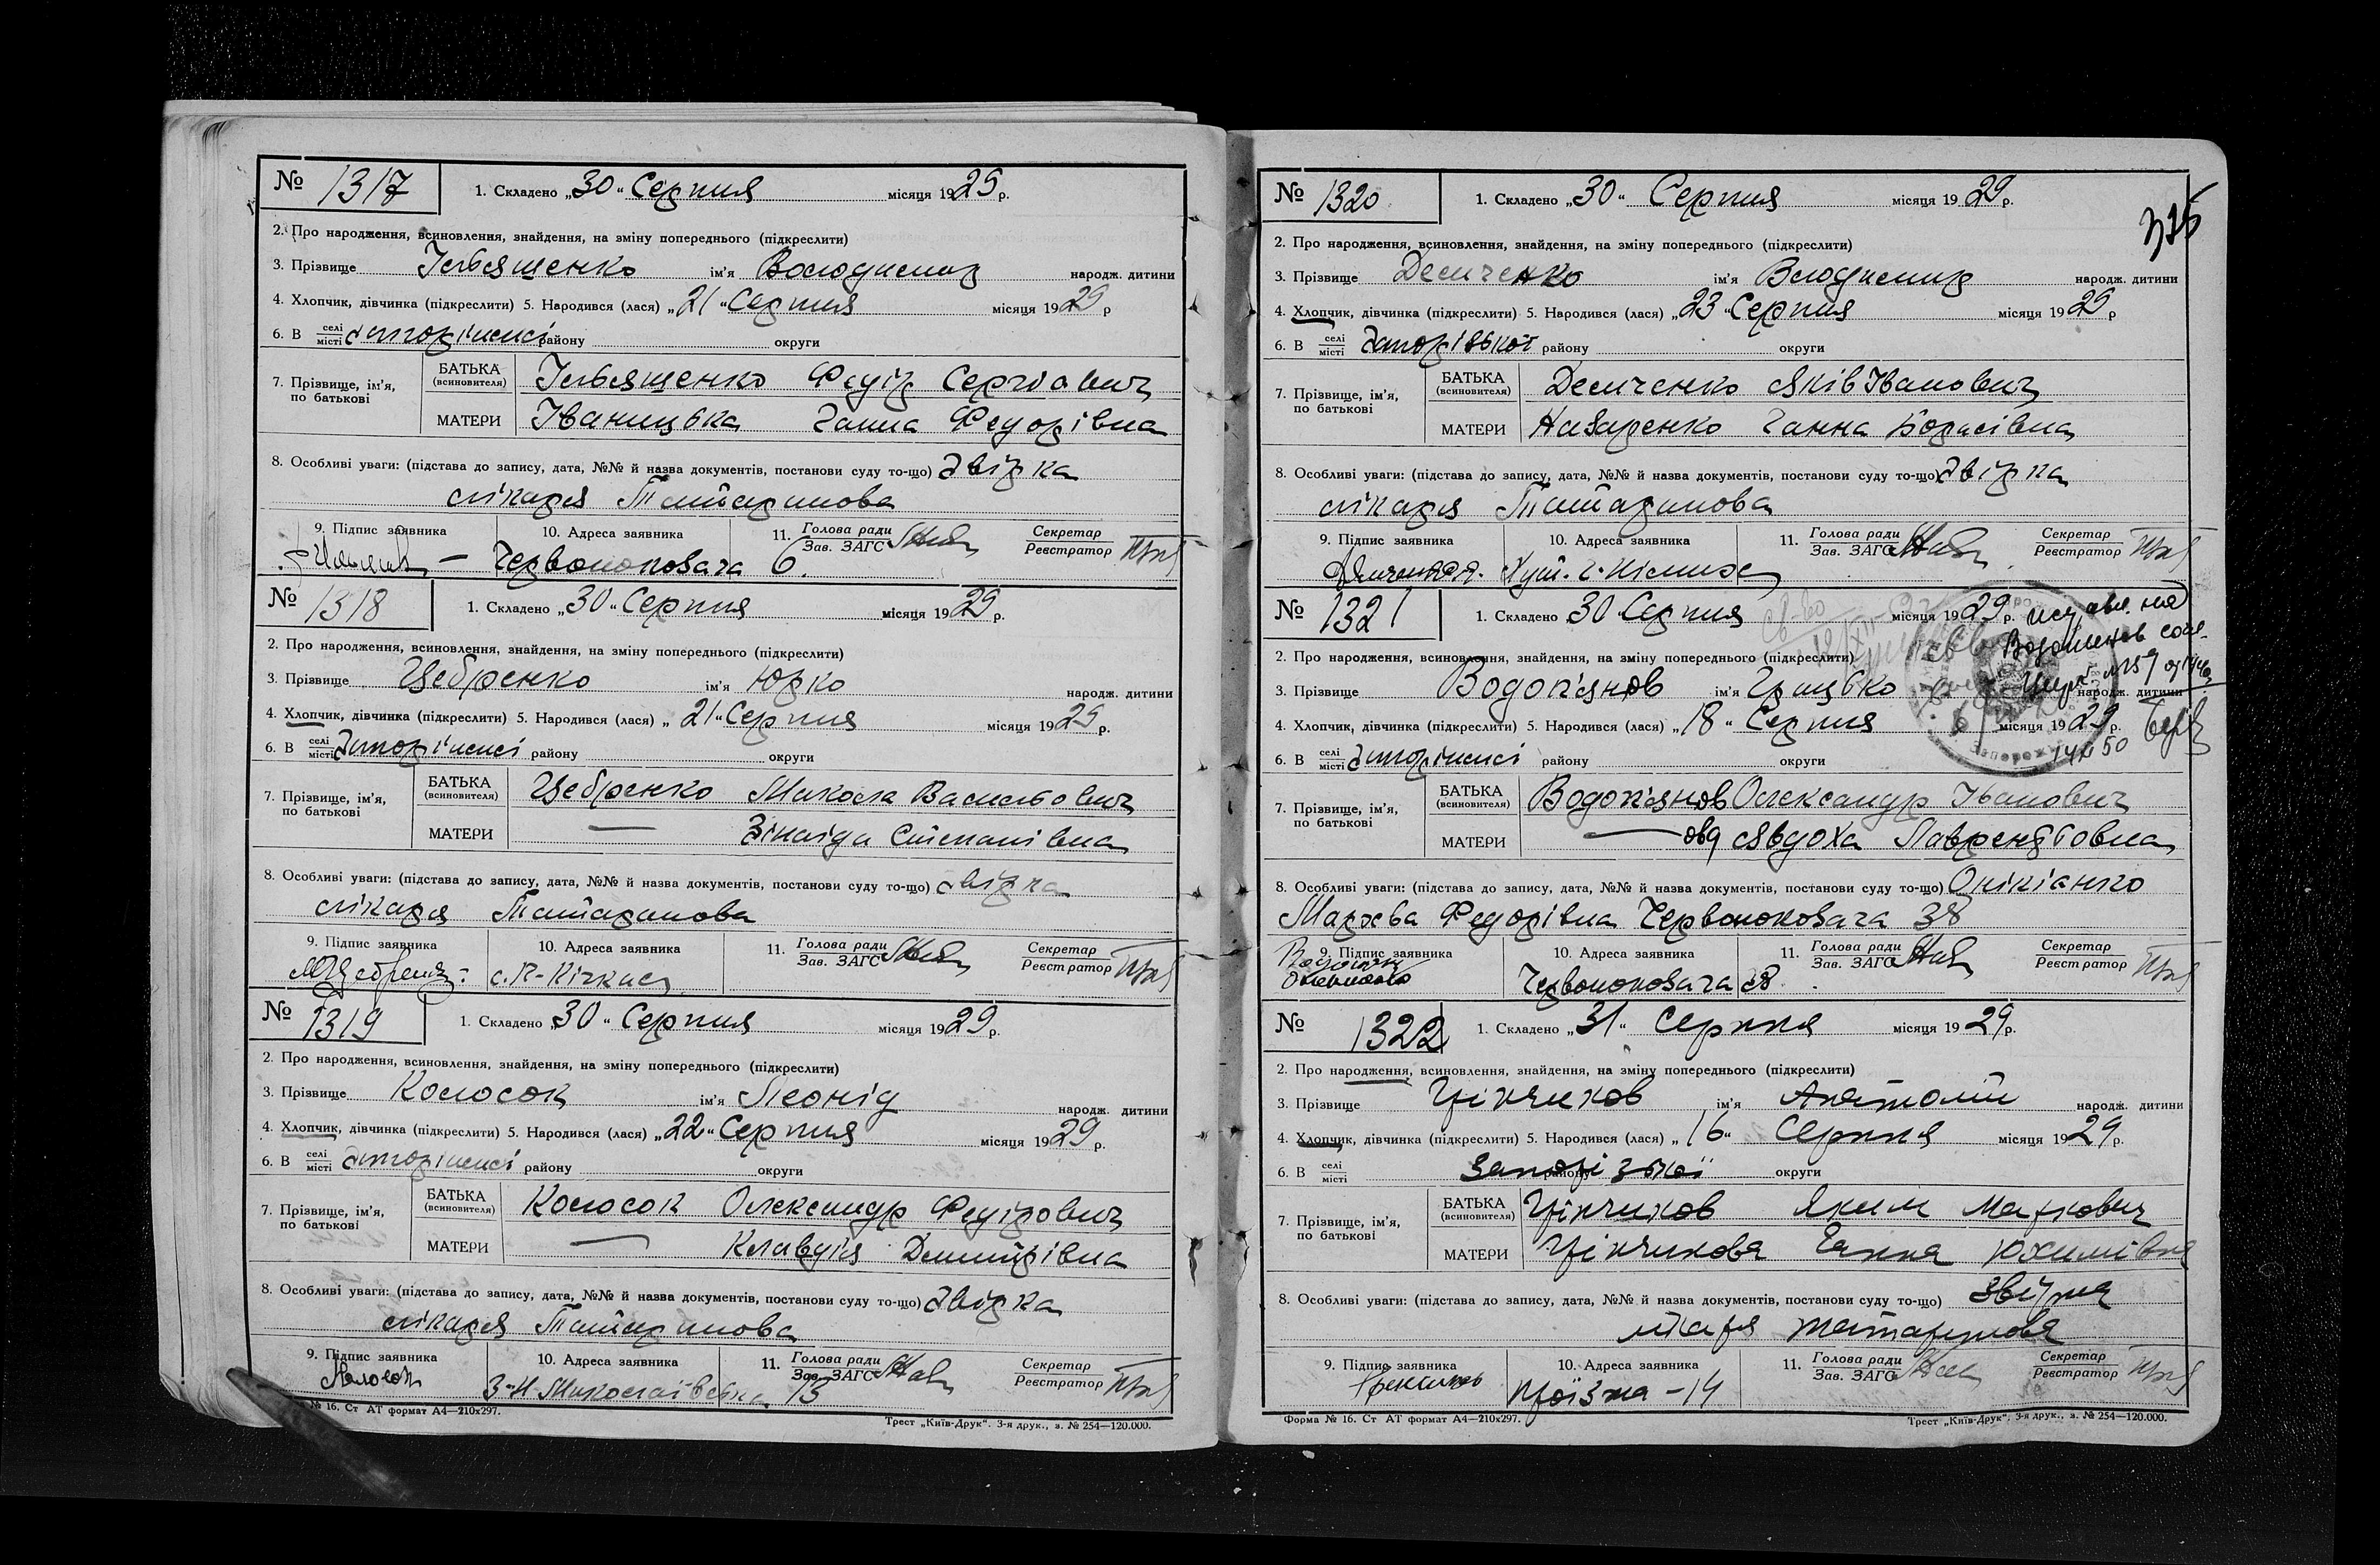 № 1317 1. Складено „30“ Серпня місяця 1929 р.
2. Про народження, всиновлення, знайдення, на зміну попереднього (підкреслити)
3. Прізвище Ільяшенко ім'я Володимир народж. дитини
4. Хлопчик, дівчинка (підкреслити) 5. Народився (лася) „21“ Серпня місяця 1929 р
6. В селі місті Запоріжжі району округи
7. Прізвище, ім'я, по батькові БАТЬКА (всиновителя) Ільяшенко Федір Сергієвич
МАТЕРИ Іваницька Ганна Федорівна
8. Особливі уваги: (підстава до запису, дата, №№ й назва документів, постанови суду то-що) Звірка
лікаря Татаринова
9. Підпис заявника 10. Адреса заявника 11. Голова ради Зав. ЗАГС Секретар Реєстратор
Червонокозача 6.
№ 1318 1. Складено „30“ Серпня місяця 1929 р.
2. Про народження, всиновлення, знайдення, на зміну попереднього (підкреслити)
3. Прізвище Цебренко ім'я Юрко народж. дитини
4. Хлопчик, дівчинка (підкреслити) 5. Народився (лася) „21“ Серпня місяця 1929 р.
6. В селі місті Запоріжжі району округи
7. Прізвище, ім'я, по батькові БАТЬКА (всиновителя) Цебренко Микола Васильович
МАТЕРИ — Зінаїда Степанівна
8. Особливі уваги: (підстава до запису, дата, №№ й назва документів, постанови суду то-що) Звірка
лікаря Татаринова
9. Підпис заявника 10. Адреса заявника 11. Голова ради Зав. ЗАГС Секретар Реєстратор
с. П-Кічкас
№ 1319 1. Складено „30“ Серпня місяця 1929 р.
2. Про народження, всиновлення, знайдення, на зміну попереднього (підкреслити)
3. Прізвище Колосок ім'я Леонід народж. дитини
4. Хлопчик, дівчинка (підкреслити) 5. Народився (лася) „22“ Серпня місяця 1929 р.
6. В селі місті Запоріжжі району округи
7. Прізвище, ім'я, по батькові БАТЬКА (всиновителя) Колосок Олександр Федірович
МАТЕРИ — Клавдія Дмитрівна
8. Особливі уваги: (підстава до запису, дата, №№ й назва документів, постанови суду то-що) Звірка
лікаря Татаринова
9. Підпис заявника 10. Адреса заявника 11. Голова ради Зав. ЗАГС Секретар Реєстратор
Колосок 3-Н-Миколаївська 13
№ 16. Ст АТ формат А4—210х297. Трест „Київ-Друк“. 3-я друк., з. № 254—120.000.
№ 1320 1. Складено „30“ Серпня місяця 1929 р.
2. Про народження, всиновлення, знайдення, на зміну попереднього (підкреслити)
3. Прізвище Демченко ім'я Володимир народж. дитини
4. Хлопчик, дівчинка (підкреслити) 5. Народився (лася) „23“ Серпня місяця 1929 р
6. В селі місті району округи
7. Прізвище, ім'я, по батькові БАТЬКА (всиновителя) Демченко Яків Іванович
МАТЕРИ Назаренко Ганна Борисівна
8. Особливі уваги: (підстава до запису, дата, №№ й назва документів, постанови суду то-що) Звірка
лікаря Татаринова
9. Підпис заявника 10. Адреса заявника 11. Голова ради Зав. ЗАГС Секретар Реєстратор
Хут.
№ 1321 1. Складено 30 Серпня місяця 1929 р.
2. Про народження, всиновлення, знайдення, на зміну попереднього (підкреслити)
3. Прізвище Водоп'янов ім'я Грицько народж. дитини
4. Хлопчик, дівчинка (підкреслити) 5. Народився (лася) „18“ Серпня місяця 1929 р.
6. В селі місті Запоріжжі району округи
7. Прізвище, ім'я, по батькові БАТЬКА (всиновителя) Водоп'янов Олександр Іванович
МАТЕРИ — Явдоха Лаврентьовна
8. Особливі уваги: (підстава до запису, дата, №№ й назва документів, постанови суду то-що) Онікієнко
Мархва Федорівна Червонокозача 38
9. Підпис заявника 10. Адреса заявника 11. Голова ради Зав. ЗАГС Секретар Реєстратор
Червонокозача 38
№ 1322 1. Складено „31“ Серпня місяця 1929 р.
2. Про народження, всиновлення, знайдення, на зміну попереднього (підкреслити)
3. Прізвище Грінчиков ім'я Анатолій народж. дитини
4. Хлопчик, дівчинка (підкреслити) 5. Народився (лася) „16“ Серпня місяця 1929 р.
6. В селі місті району Запорізької округи
7. Прізвище, ім'я, по батькові БАТЬКА (всиновителя) Грінчиков Яким Маркович
МАТЕРИ Грінчикова Ганна Юхимівна
8. Особливі уваги: (підстава до запису, дата, №№ й назва документів, постанови суду то-що) Звірка
лікаря Татаринова
9. Підпис заявника 10. Адреса заявника 11. Голова ради Зав. ЗАГС Секретар Реєстратор
Проїзна — 14
Форма № 16. Ст АТ формат А4—210х297. Трест „Київ-Друк“. 3-я друк., з. № 254—120.000.